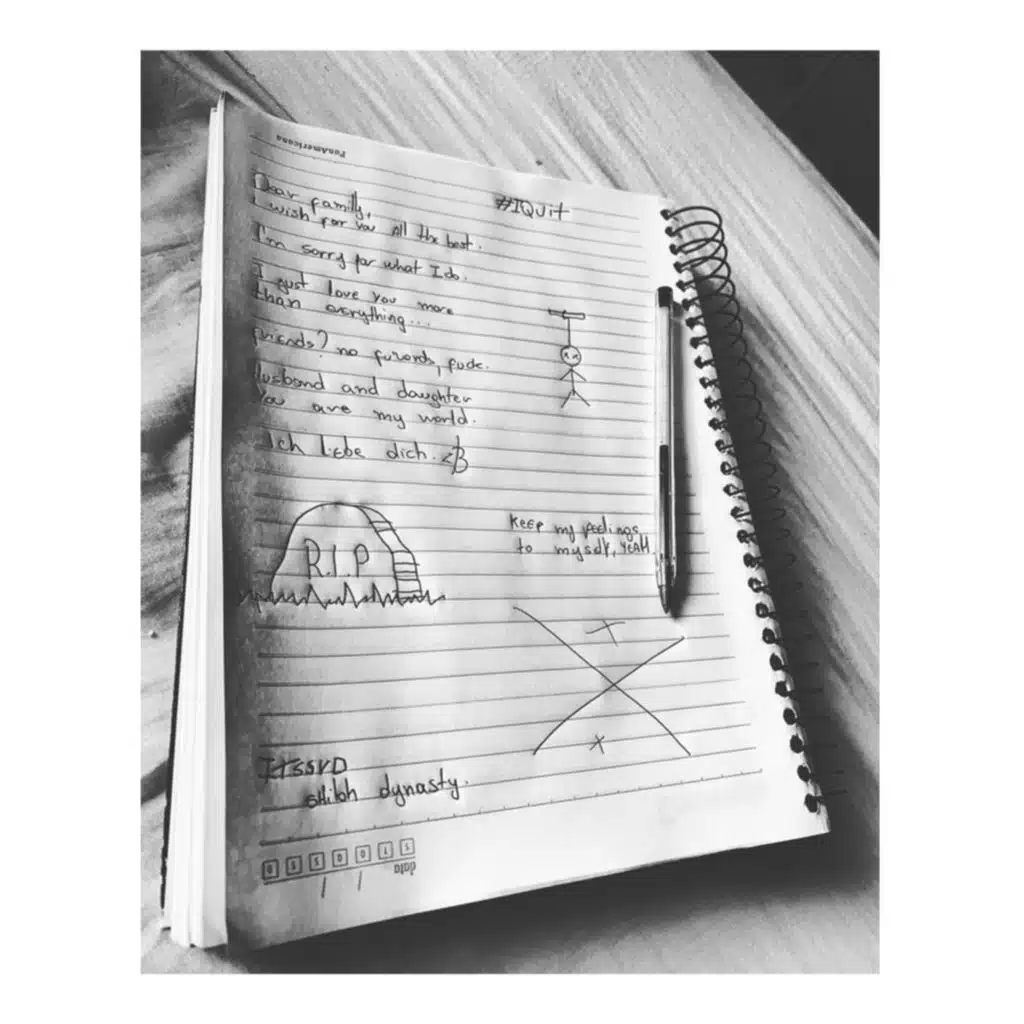 PanAmericana
#IQuit
Dear family,
I wish for you All the best.
I'm sorry for what I do.
I just love you more
than everything...
friends? no
Husband and daughter
You are my world.
Ich liebe dich. <3
R.I.P
Keep my feelings
to myself, YEAH.
dynasty.
data
S T Q Q S S D